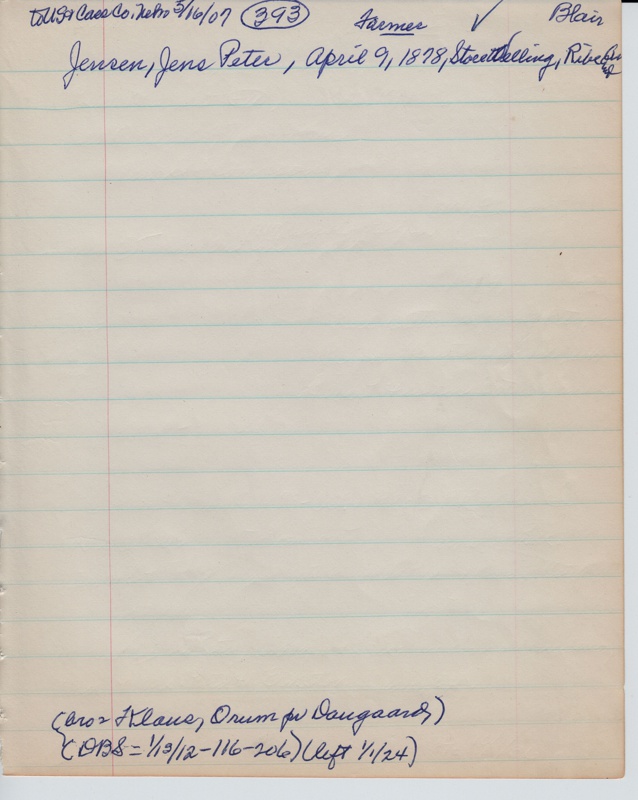 to US & Cass Co. Nebr 3/16/07 (393) Farmer ✓ Blair
Jensen, Jens Peter, April 9, 1878, Store Welling, Ribe
(bro = Klaus, Orum pr Daugaard)
(DBS = 1/13/12-116-206) (left 1/1/24)